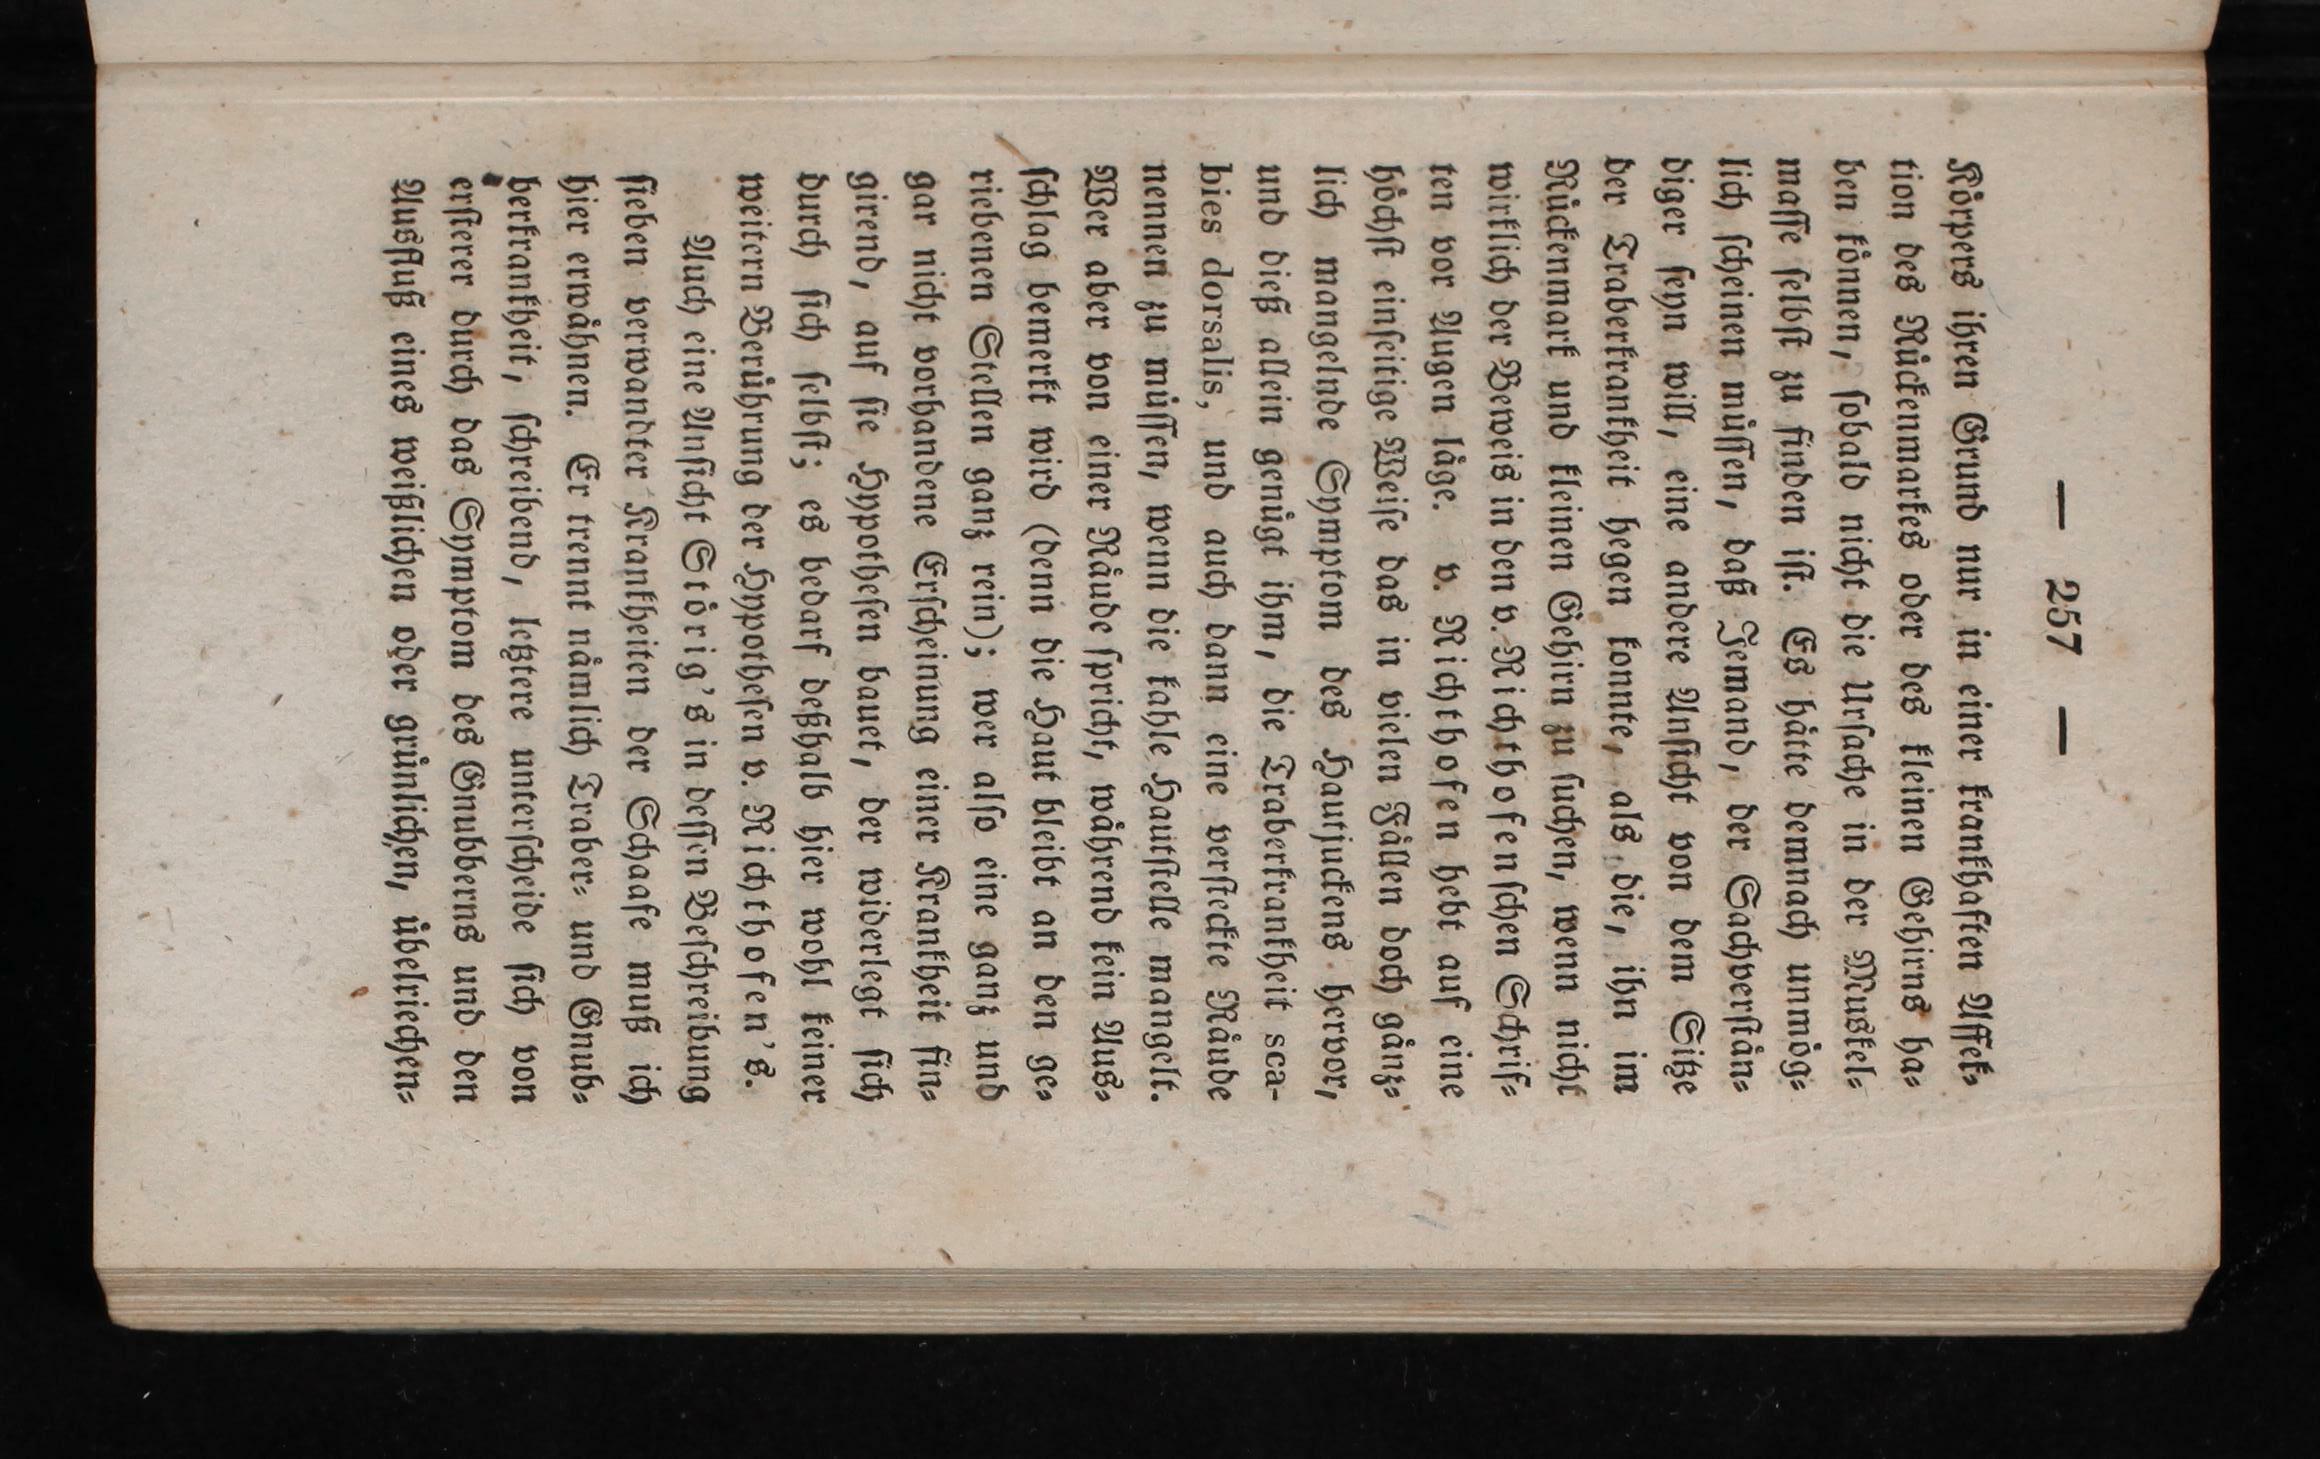 — 257 —
Körpers ihren Grund nur in einer krankhaften Affek-
tion des Rückenmarkes oder des kleinen Gehirns ha-
ben können, sobald nicht die Ursache in der Muskel-
masse selbst zu finden ist. Es hätte demnach unmög-
lich scheinen müssen, daß Jemand, der Sachverstän-
diger seyn will, eine andere Ansicht von dem Sitze
der Traberkrankheit hegen konnte, als die, ihn im
Rückenmark und kleinen Gehirn zu suchen, wenn nicht
wirklich der Beweis in den v. Richthofenschen Schrif-
ten vor Augen läge. v. Richthofen hebt auf eine
höchst einseitige Weise das in vielen Fällen doch gänz-
lich mangelnde Symptom des Hautjuckens hervor,
und dieß allein genügt ihm, die Traberkrankheit sca-
bies dorsalis, und auch dann eine versteckte Räude
nennen zu müssen, wenn die kahle Hautstelle mangelt.
Wer aber von einer Räude spricht, während kein Aus-
schlag bemerkt wird (denn die Haut bleibt an den ge-
riebenen Stellen ganz rein); wer also eine ganz und
gar nicht vorhandene Erscheinung einer Krankheit fin-
girend, auf sie Hypothesen bauet, der widerlegt sich
durch sich selbst; es bedarf deßhalb hier wohl keiner
weitern Berührung der Hypothesen v. Richthofen's.
Auch eine Ansicht Störig's in dessen Beschreibung
sieben verwandter Krankheiten der Schaafe muß ich
hier erwähnen. Er trennt nämlich Traber- und Gnub-
berkrankheit, schreibend, letztere unterscheide sich von
ersterer durch das Symptom des Gnubberns und den
Ausfluß eines weißlichen oder grünlichen, übelriechen-